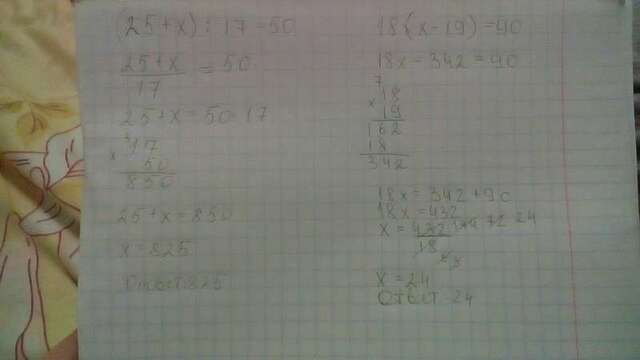 (25+x) : 17 = 50
25+x
17
= 50
25+x = 50·17
17
×
50
850
25+x = 850
x = 825
Ответ: 825
18(x-19) = 90
18x - 342 = 90
7
18
×
19
162
18
342
18x = 342 + 90
18x = 432
x = 432
18
72 24
x = 24
Ответ 24